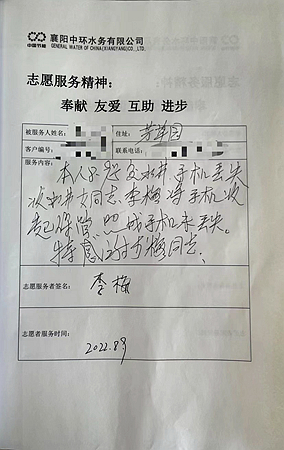 中国节能
襄阳中环水务有限公司
GENERAL WATER OF CHINA(XIANGYANG)CO.,LTD.
志愿服务精神：
奉献 友爱 互助 进步
被服务人姓名： 住址：
客户编号： 联系电话：
服务内容：
本人 手机丢失
女同志李梅 手机收
起保管 手机未丢失。
特感谢 梅同志.
志愿服务者签名： 李梅
志愿者服务时间：
2022.8.9